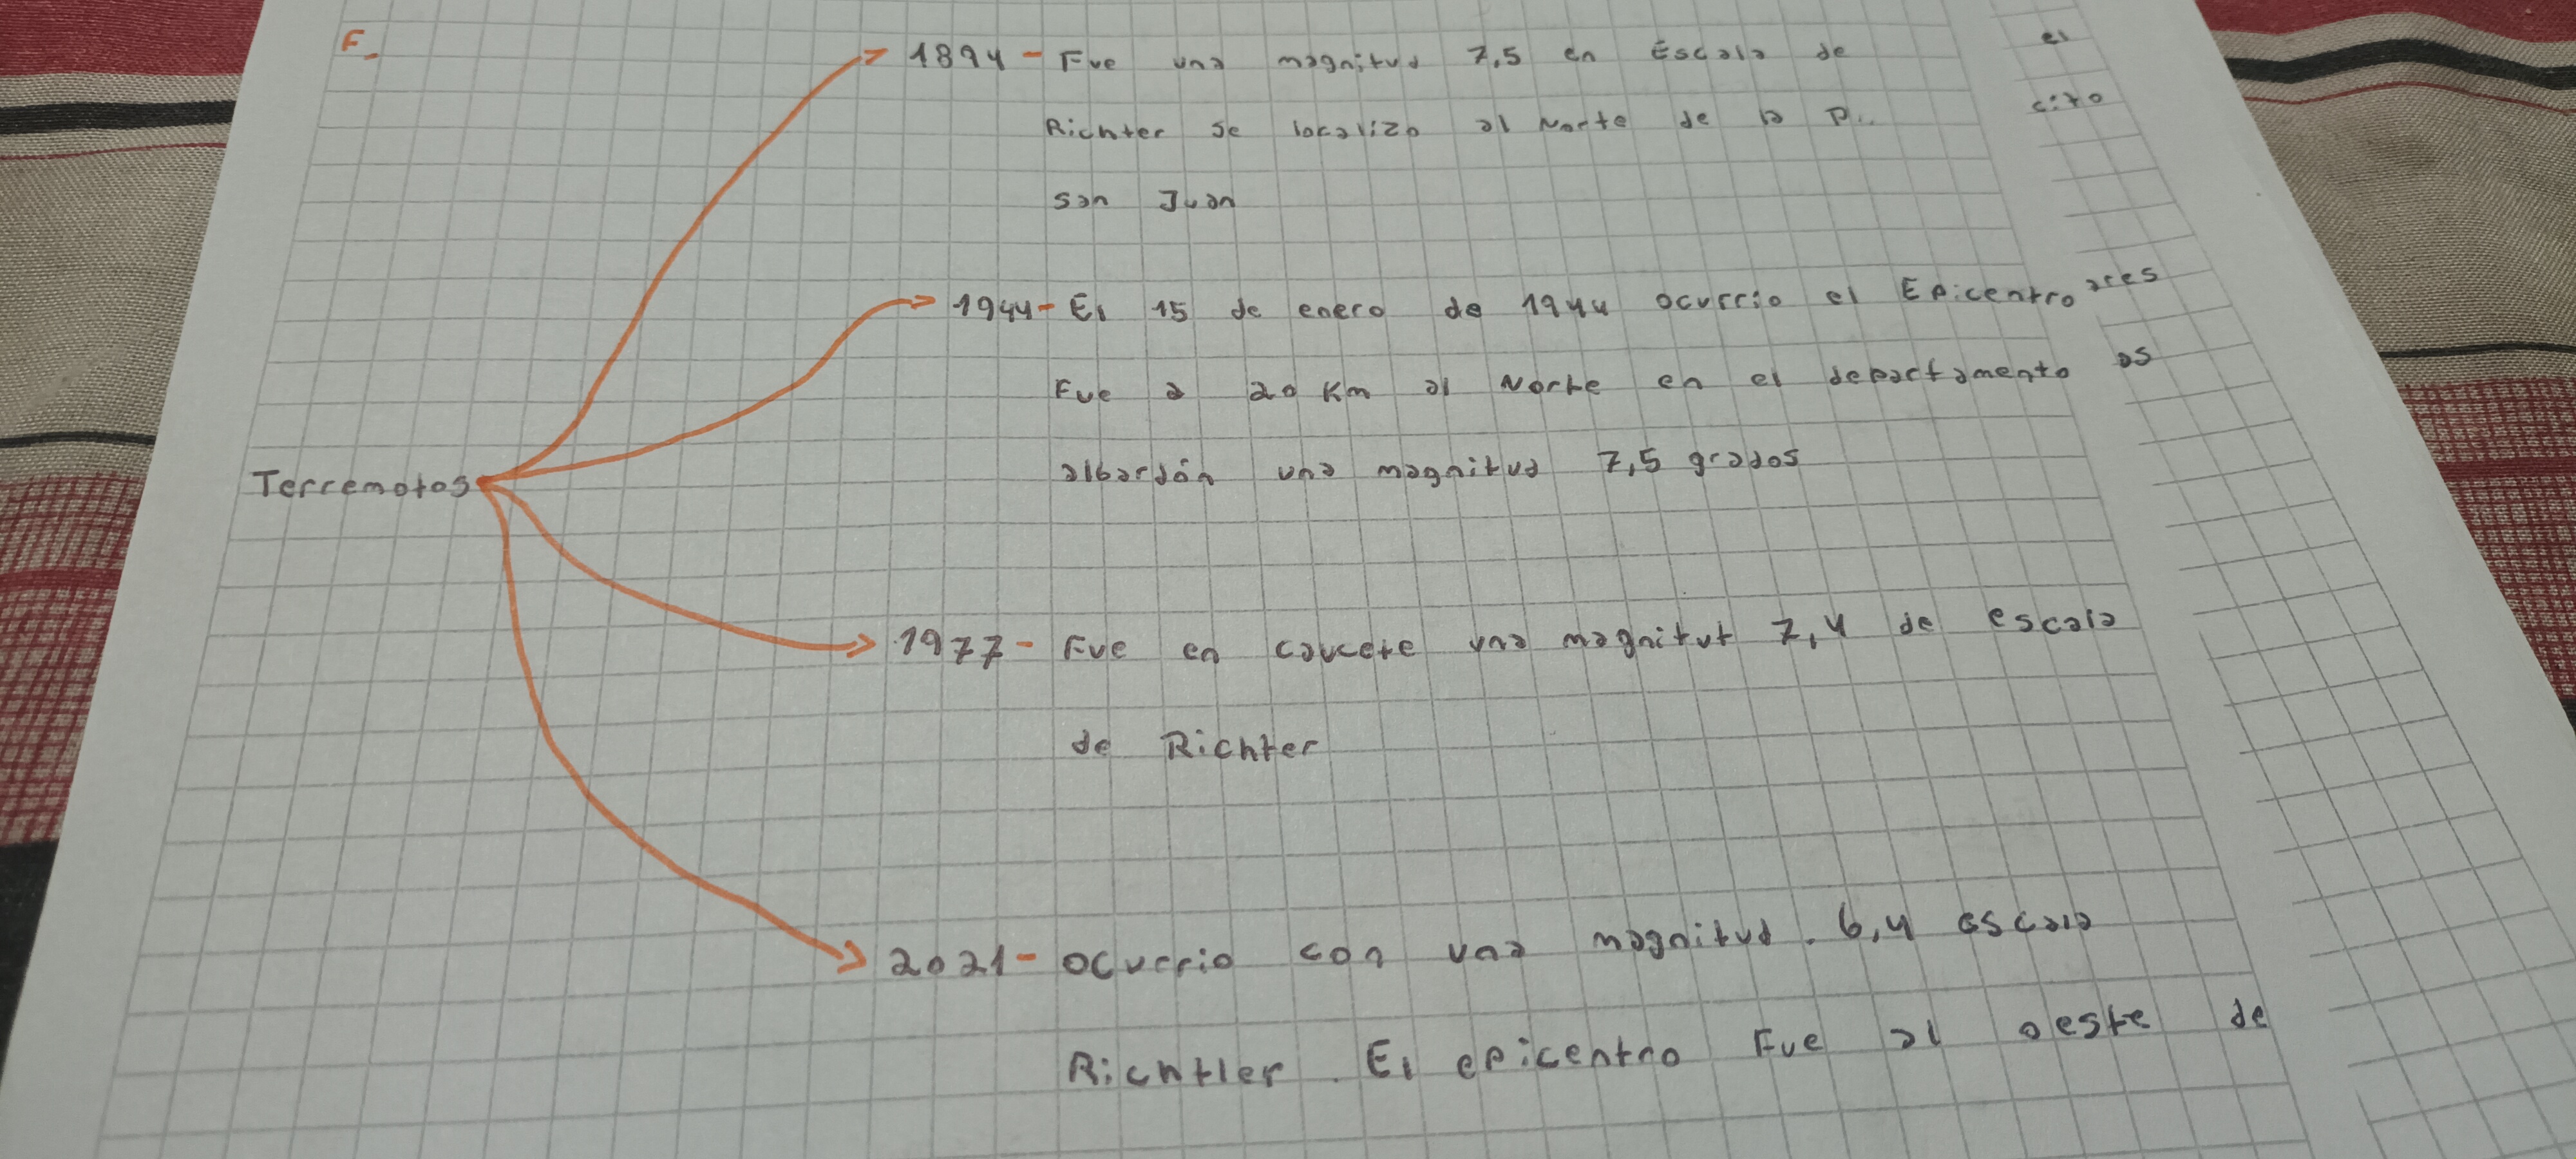 F.
1894 - Fue una magnitud 7,5 en Escala de
Richter se localizo al Norte de la P..
san Juan
1944 - El 15 de enero de 1944 ocurrio el Epicentro
Fue a 20 Km al Norte en el departamento
albardón una magnitud 7,5 grados
Terremotos
1977 - Fue en caucete una magnitut 7,4 de escala
de Richter
2021 - ocurrio con una magnitud. 6,4 escala
Richtler. El epicentro Fue al oeste de
el
cito
ares
as